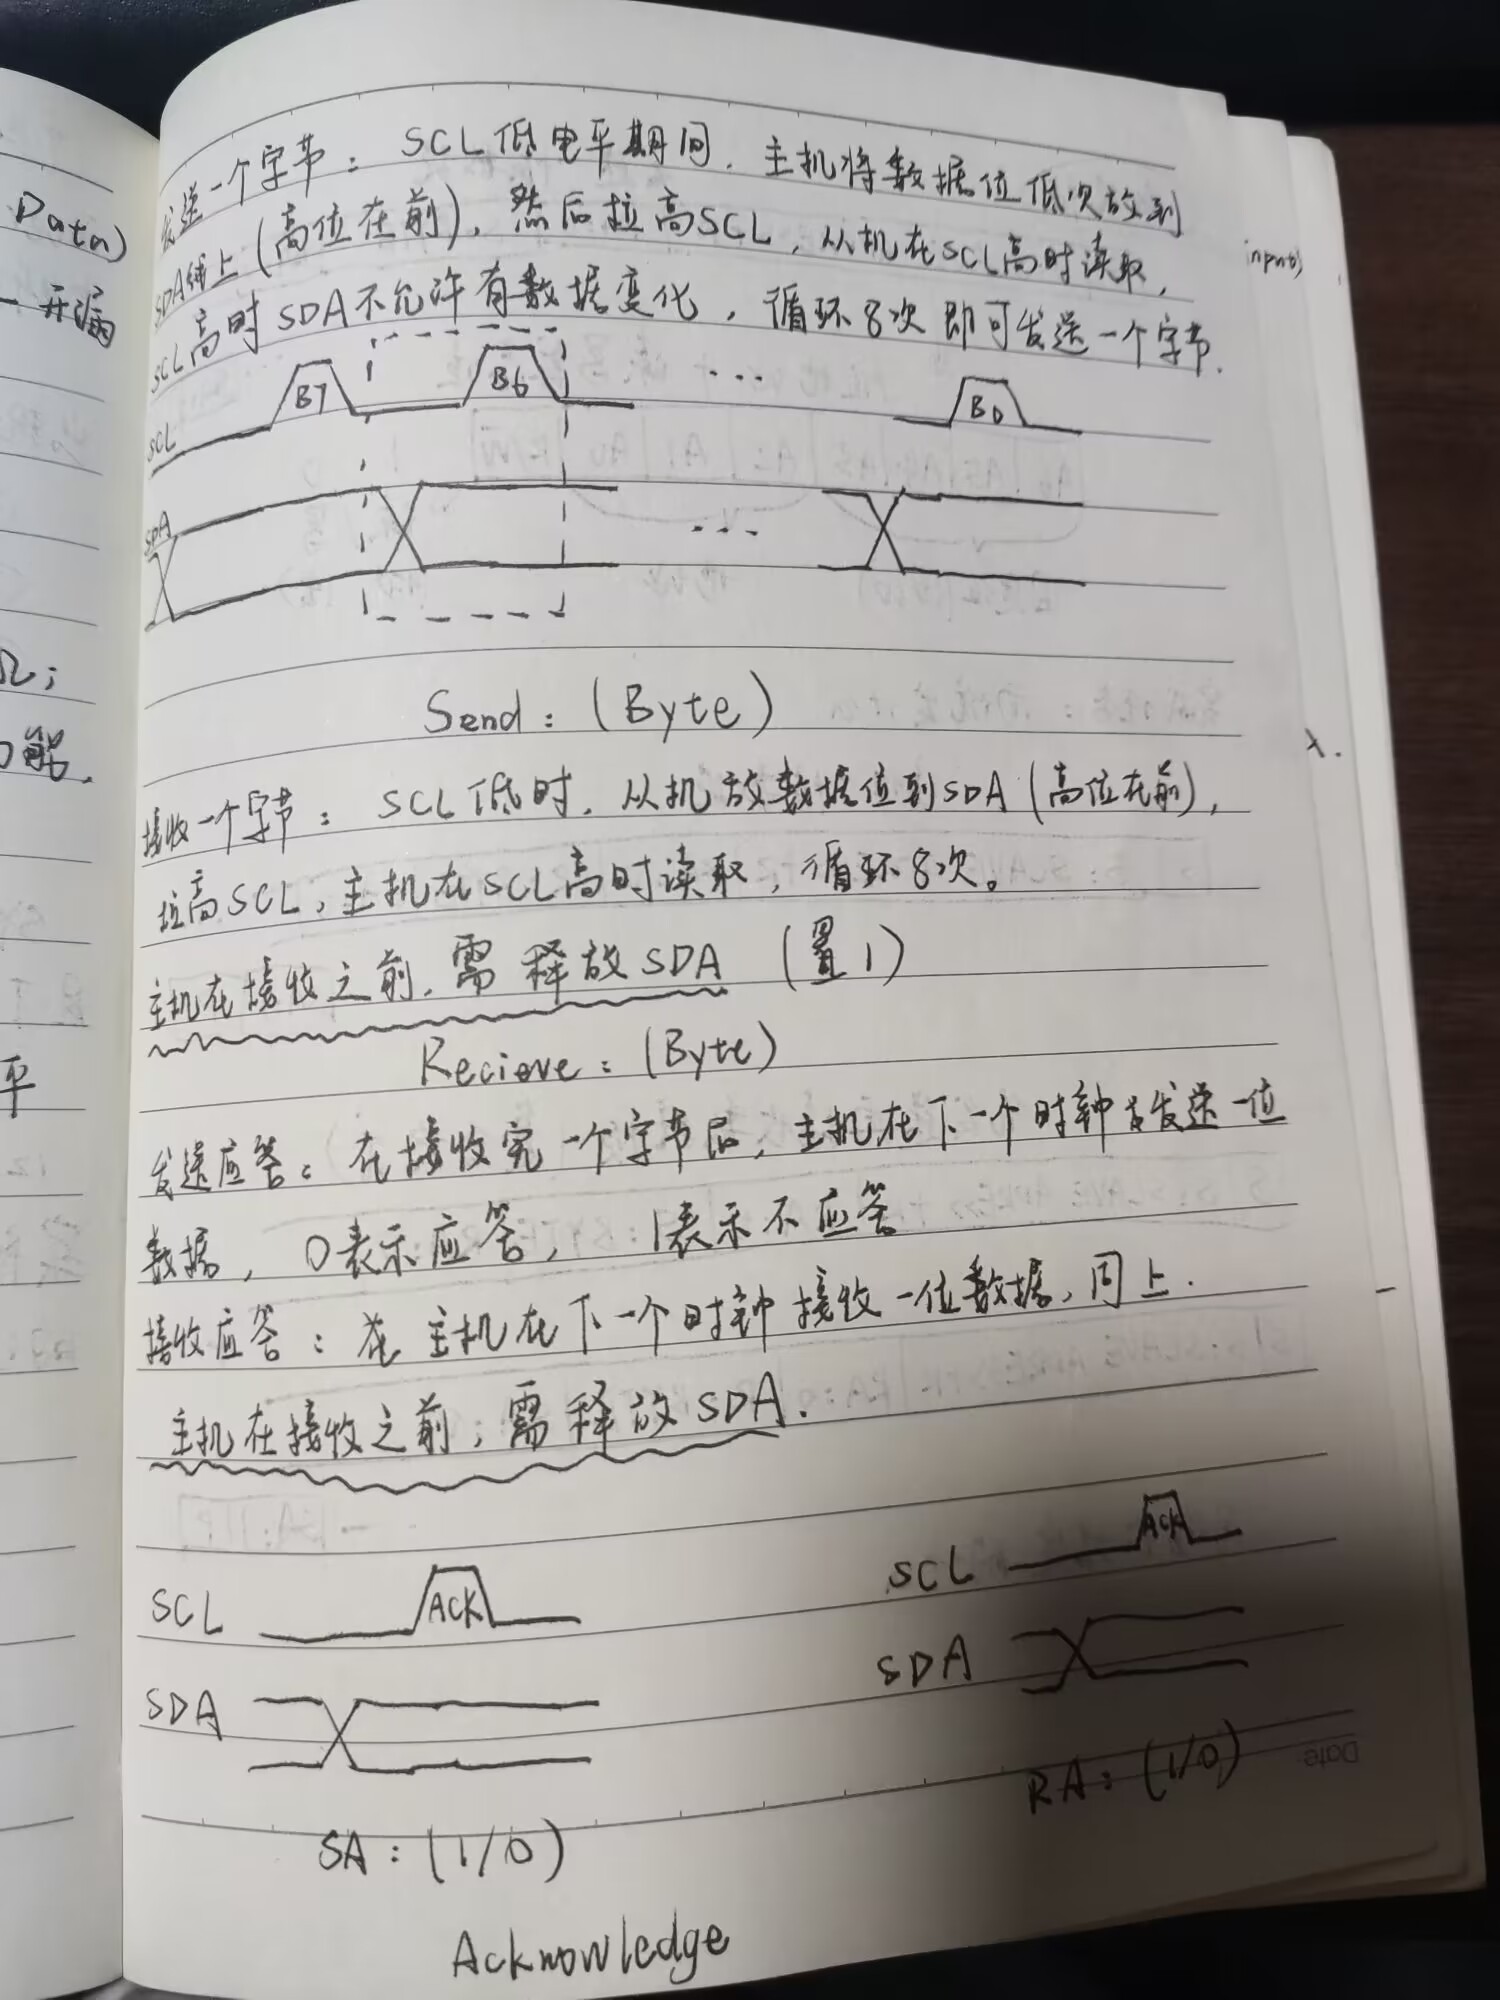 Data)
开漏
Ω;
能.
平
input)
入.
发送一个字节: SCL低电平期间. 主机将数据位低次放到
SDA线上(高位在前), 然后拉高SCL, 从机在SCL高时读取,
SCL高时SDA不允许有数据变化, 循环8次即可发送一个字节.
B7 B6 ... B0
SCL
SDA ...
Send: (Byte)
接收一个字节: SCL低时. 从机放数据位到SDA(高位在前),
拉高SCL, 主机在SCL高时读取, 循环8次。
主机在接收之前, 需释放SDA (置1)
Recieve: (Byte)
发送应答: 在接收完一个字节后, 主机在下一个时钟发送一位
数据, 0表示应答, 1表示不应答
接收应答: 在主机在下一个时钟接收一位数据, 同上.
主机在接收之前, 需释放SDA.
SCL ACK
SDA
SA: (1/0)
SCL ACK
SDA
RA: (1/0)
Date
Acknowledge